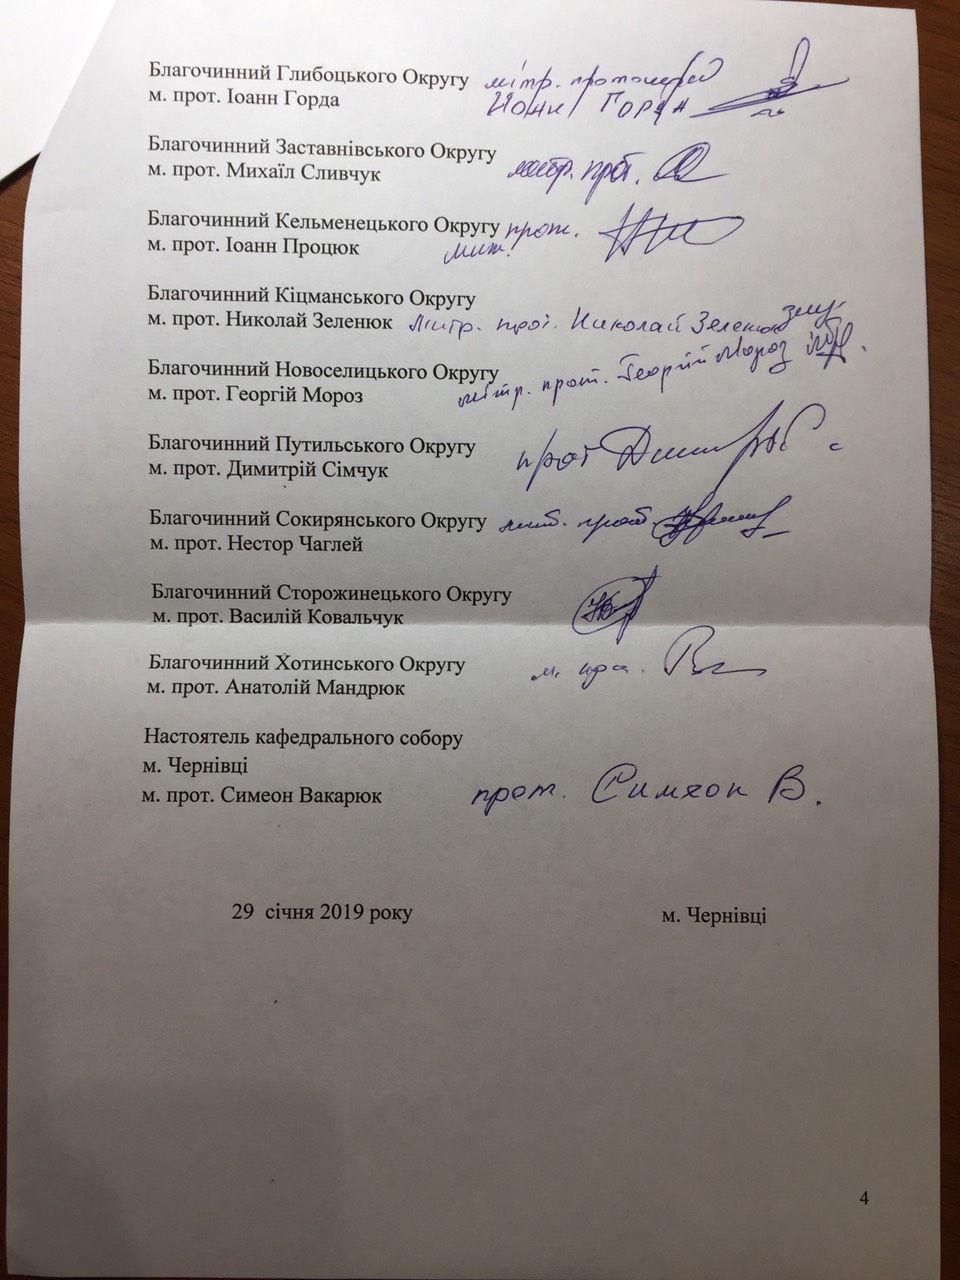 Благочинний Глибоцького Округу мітр. протоиерей
м. прот. Іоанн Горда Иоанн Горда
Благочинний Заставнівського Округу
м. прот. Михаїл Сливчук митр. прот.
Благочинний Кельменецького Округу прот.
м. прот. Іоанн Процюк мит.
Благочинний Кіцманського Округу
м. прот. Николай Зеленюк митр. прот. Николай Зеленюк
Благочинний Новоселицького Округу
м. прот. Георгій Мороз мітр. прот. Георгій Мороз
Благочинний Путильського Округу прот
м. прот. Димитрій Сімчук
Благочинний Сокирянського Округу мит. прот.
м. прот. Нестор Чаглей
Благочинний Сторожинецького Округу
м. прот. Василій Ковальчук
Благочинний Хотинського Округу м.
м. прот. Анатолій Мандрюк
Настоятель кафедрального собору
м. Чернівці
м. прот. Симеон Вакарюк прот. Симеон В.
29 січня 2019 року м. Чернівці
4